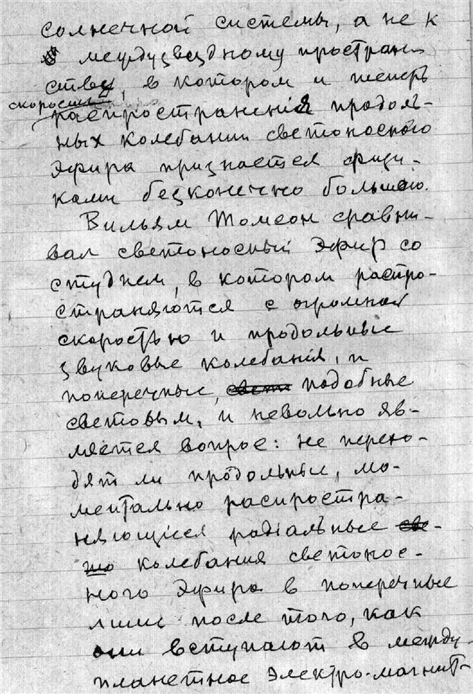 солнечной системы, а не к
междузвездному простран-
ству, в котором и теперь
скорость
распространения продоль-
ных колебаний светоносного
эфира признается физи-
ками безконечно большою.
Вильям Томсон сравни-
вал светоносный эфир со
студнем, в котором распро-
страняются с огромной
скоростью и продольные
звуковые колебания, и
поперечные, подобные
световым, и невольно яв-
ляется вопрос: не перехо-
дят ли продольные, мо-
ментально распростра-
няющіеся радіальные
колебания светонос-
ного эфира в поперечные
лишь после того, как
они вступают в между-
планетное электро-магнит-